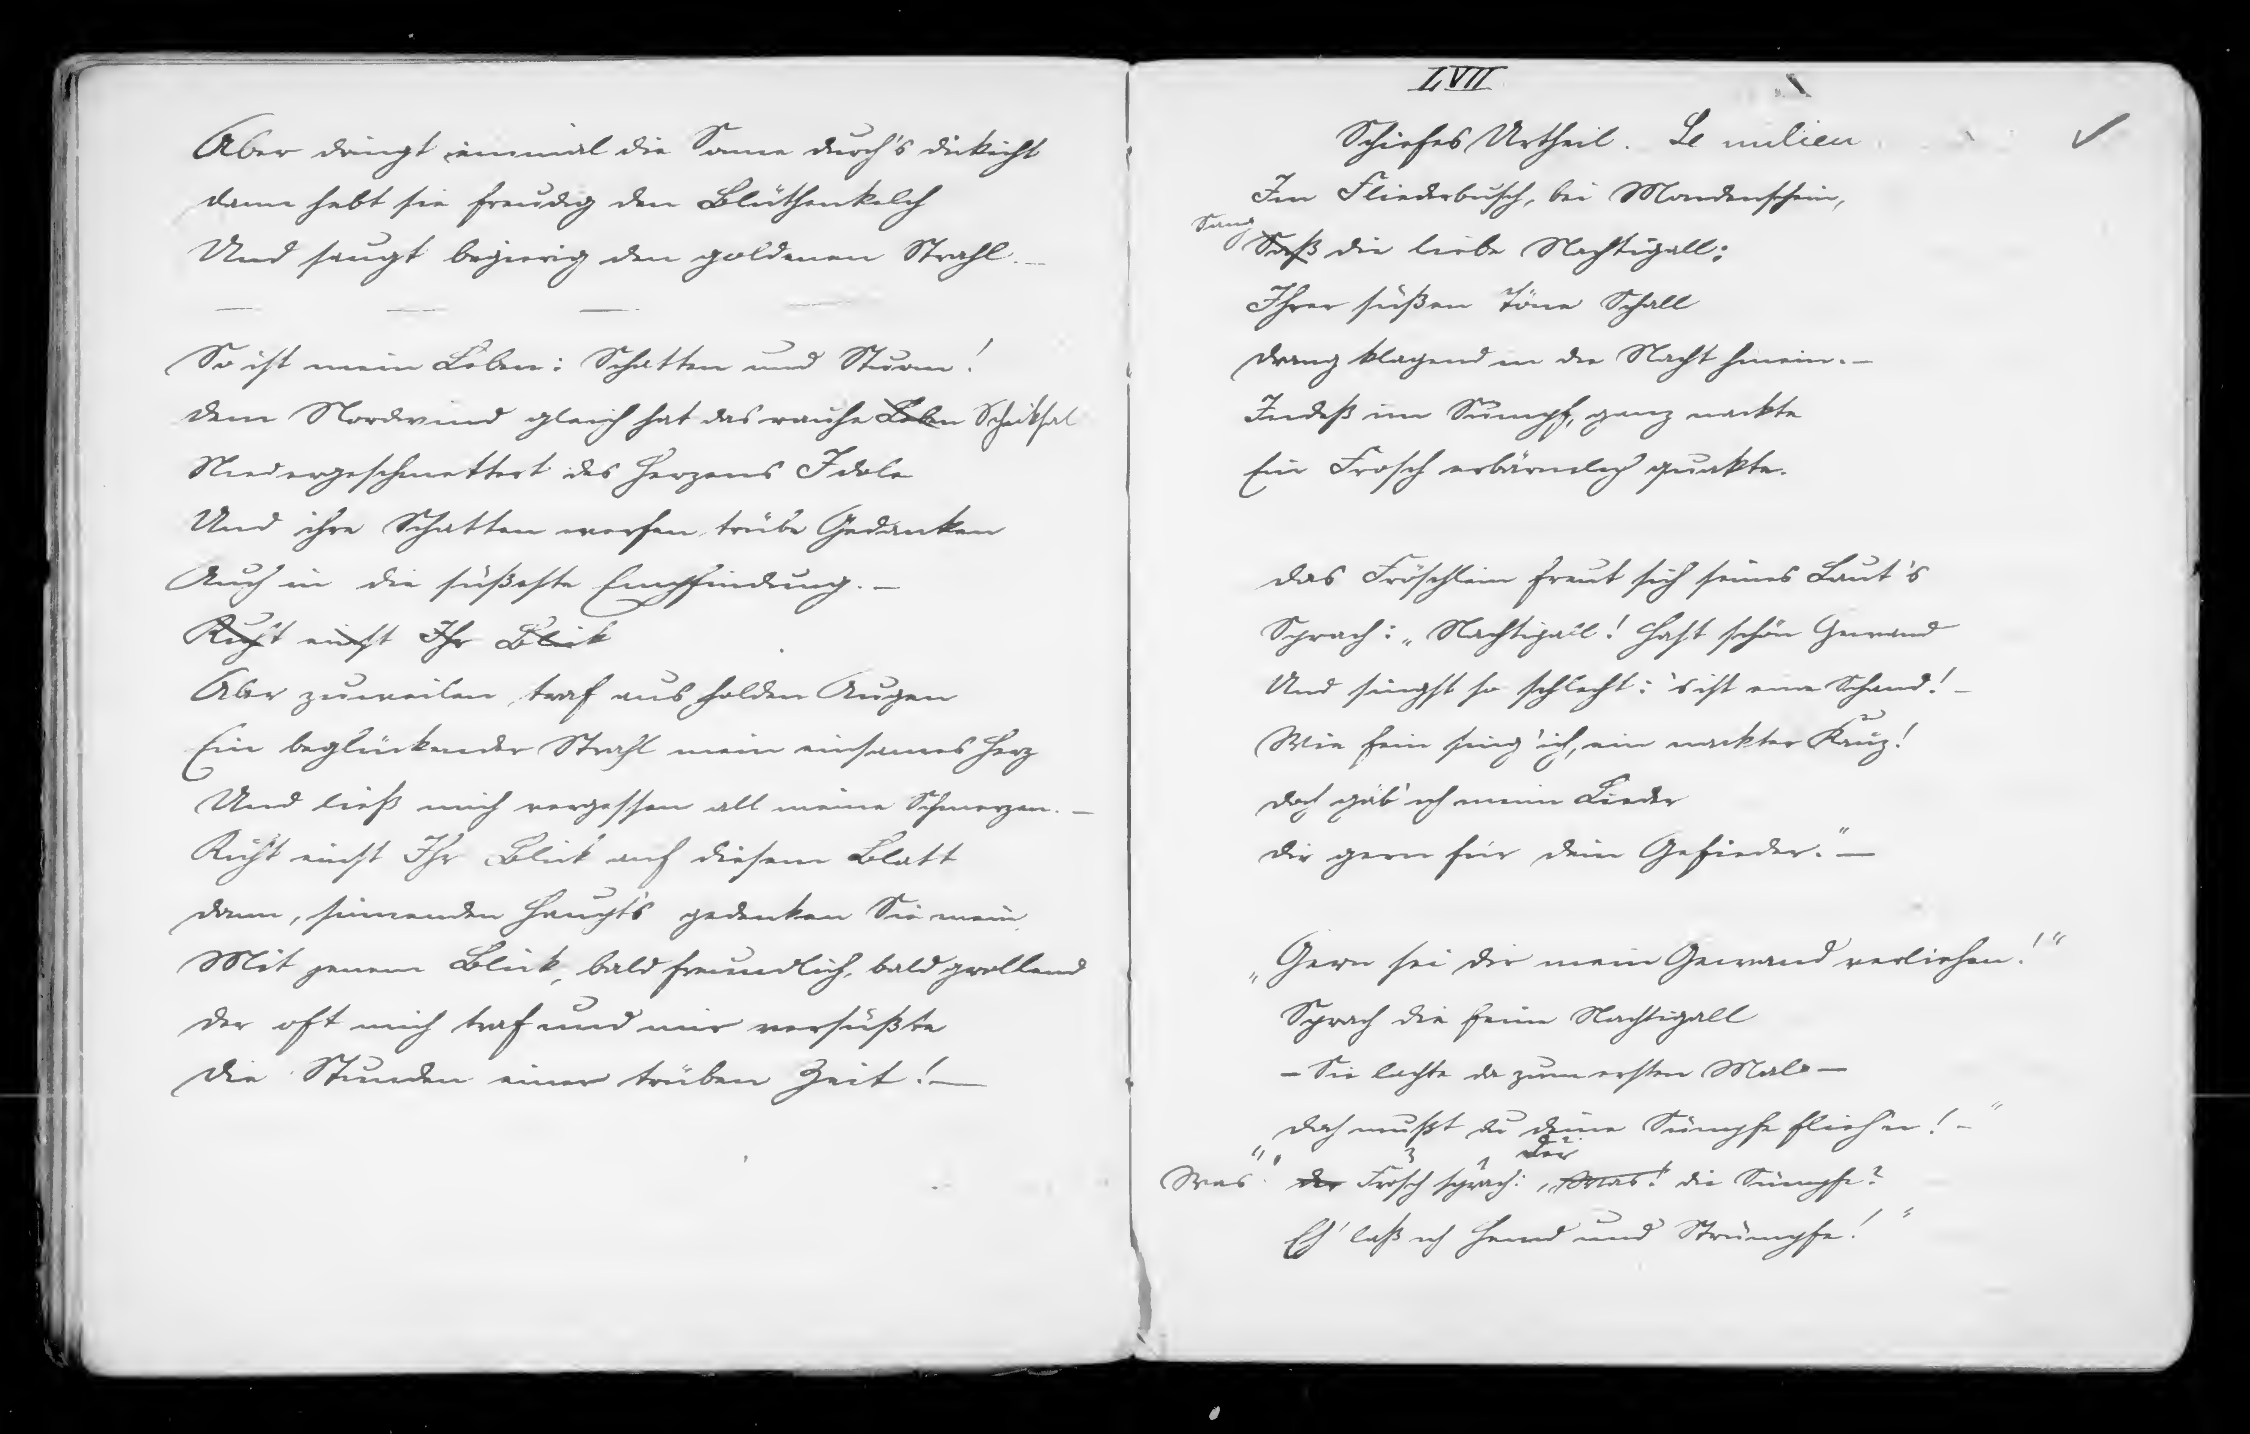 Aber dringt einmal die Sonne durch's Dickicht
Dann hebt sie freudig den Blüthenkelch
Und saugt begierig den goldenen Strahl. —
So ist mein Leben: Schatten und Sturm!
Dem Nordwind gleich hat das rauhe Leben Schicksal
Niedergeschmettert des Herzens Idole
Und ihre Schatten werfen trübe Gedanken
Auch in die süßeste Empfindung. —
Ruht einst Ihr Blick
Aber zuweilen traf aus holden Augen
Ein beglückender Strahl mein einsames Herz
Und ließ mich vergessen all meine Schmerzen. —
Ruht einst Ihr Blick auf diesem Blatt
Dann, sinnenden Haupt's gedenken Sie mein
Mit jenem Blick, bald freundlich, bald grollend
Der oft mich traf und mir versüßte
Die Stunden einer trüben Zeit! —
LVII
Schiefes Urtheil. Le milieu
Im Fliederbusch, bei Mondenschein,
Sang
Saß die liebe Nachtigall;
Ihrer süßen Töne Schall
Drang klagend in die Nacht hinein. —
Indeß im Sumpf, ganz nackte
Ein Frosch erbärmlich quakte.
Das Fröschlein freut sich seines Laut's
Sprach: „Nachtigall! Hast schön Gewand
Und singst so schlecht: 's ist eine Schand! —
Wie fein sing' ich, ein nackter Kauz!
Doch gäb' ich meine Lieder
Dir gern für dein Gefieder." —
„Gern sei dir mein Gewand verliehen!"
Sprach die feine Nachtigall
– Sie lachte da zum ersten Male –
Doch mußt du deine Sümpfe flieh'n! –"
3 1 der 2
„Was! der Frosch sprach: „Was! die Sümpfe?
Eh' laß ich Hemd und Strümpfe!"